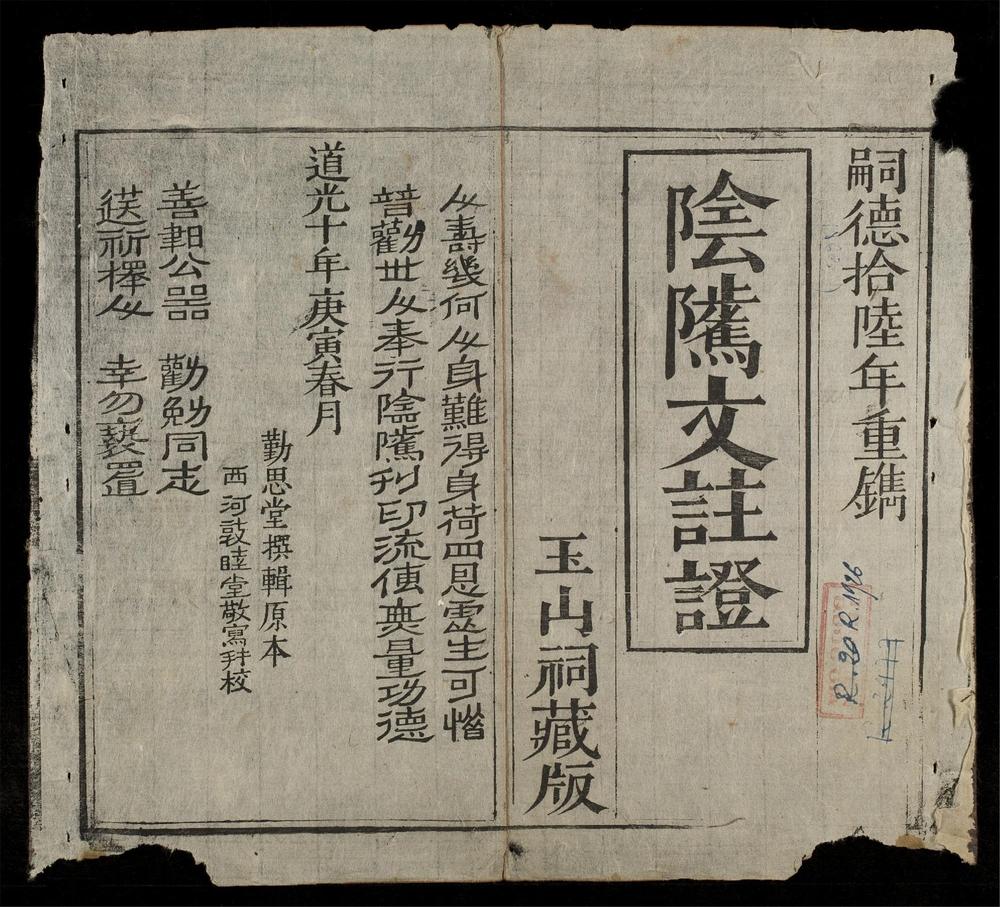 嗣德拾陸年重鐫
陰隲文註證
玉山祠藏版
人壽幾何人身難得身荷四恩虛生可惜
普勸世人奉行陰隲刊印流傳無量功德
道光十年庚寅春月
勤思堂撰輯原本
西河敦睦堂敬寫并校
善書公器 勸勉同志
送祈擇人 幸勿褻置
R.20 R.1426